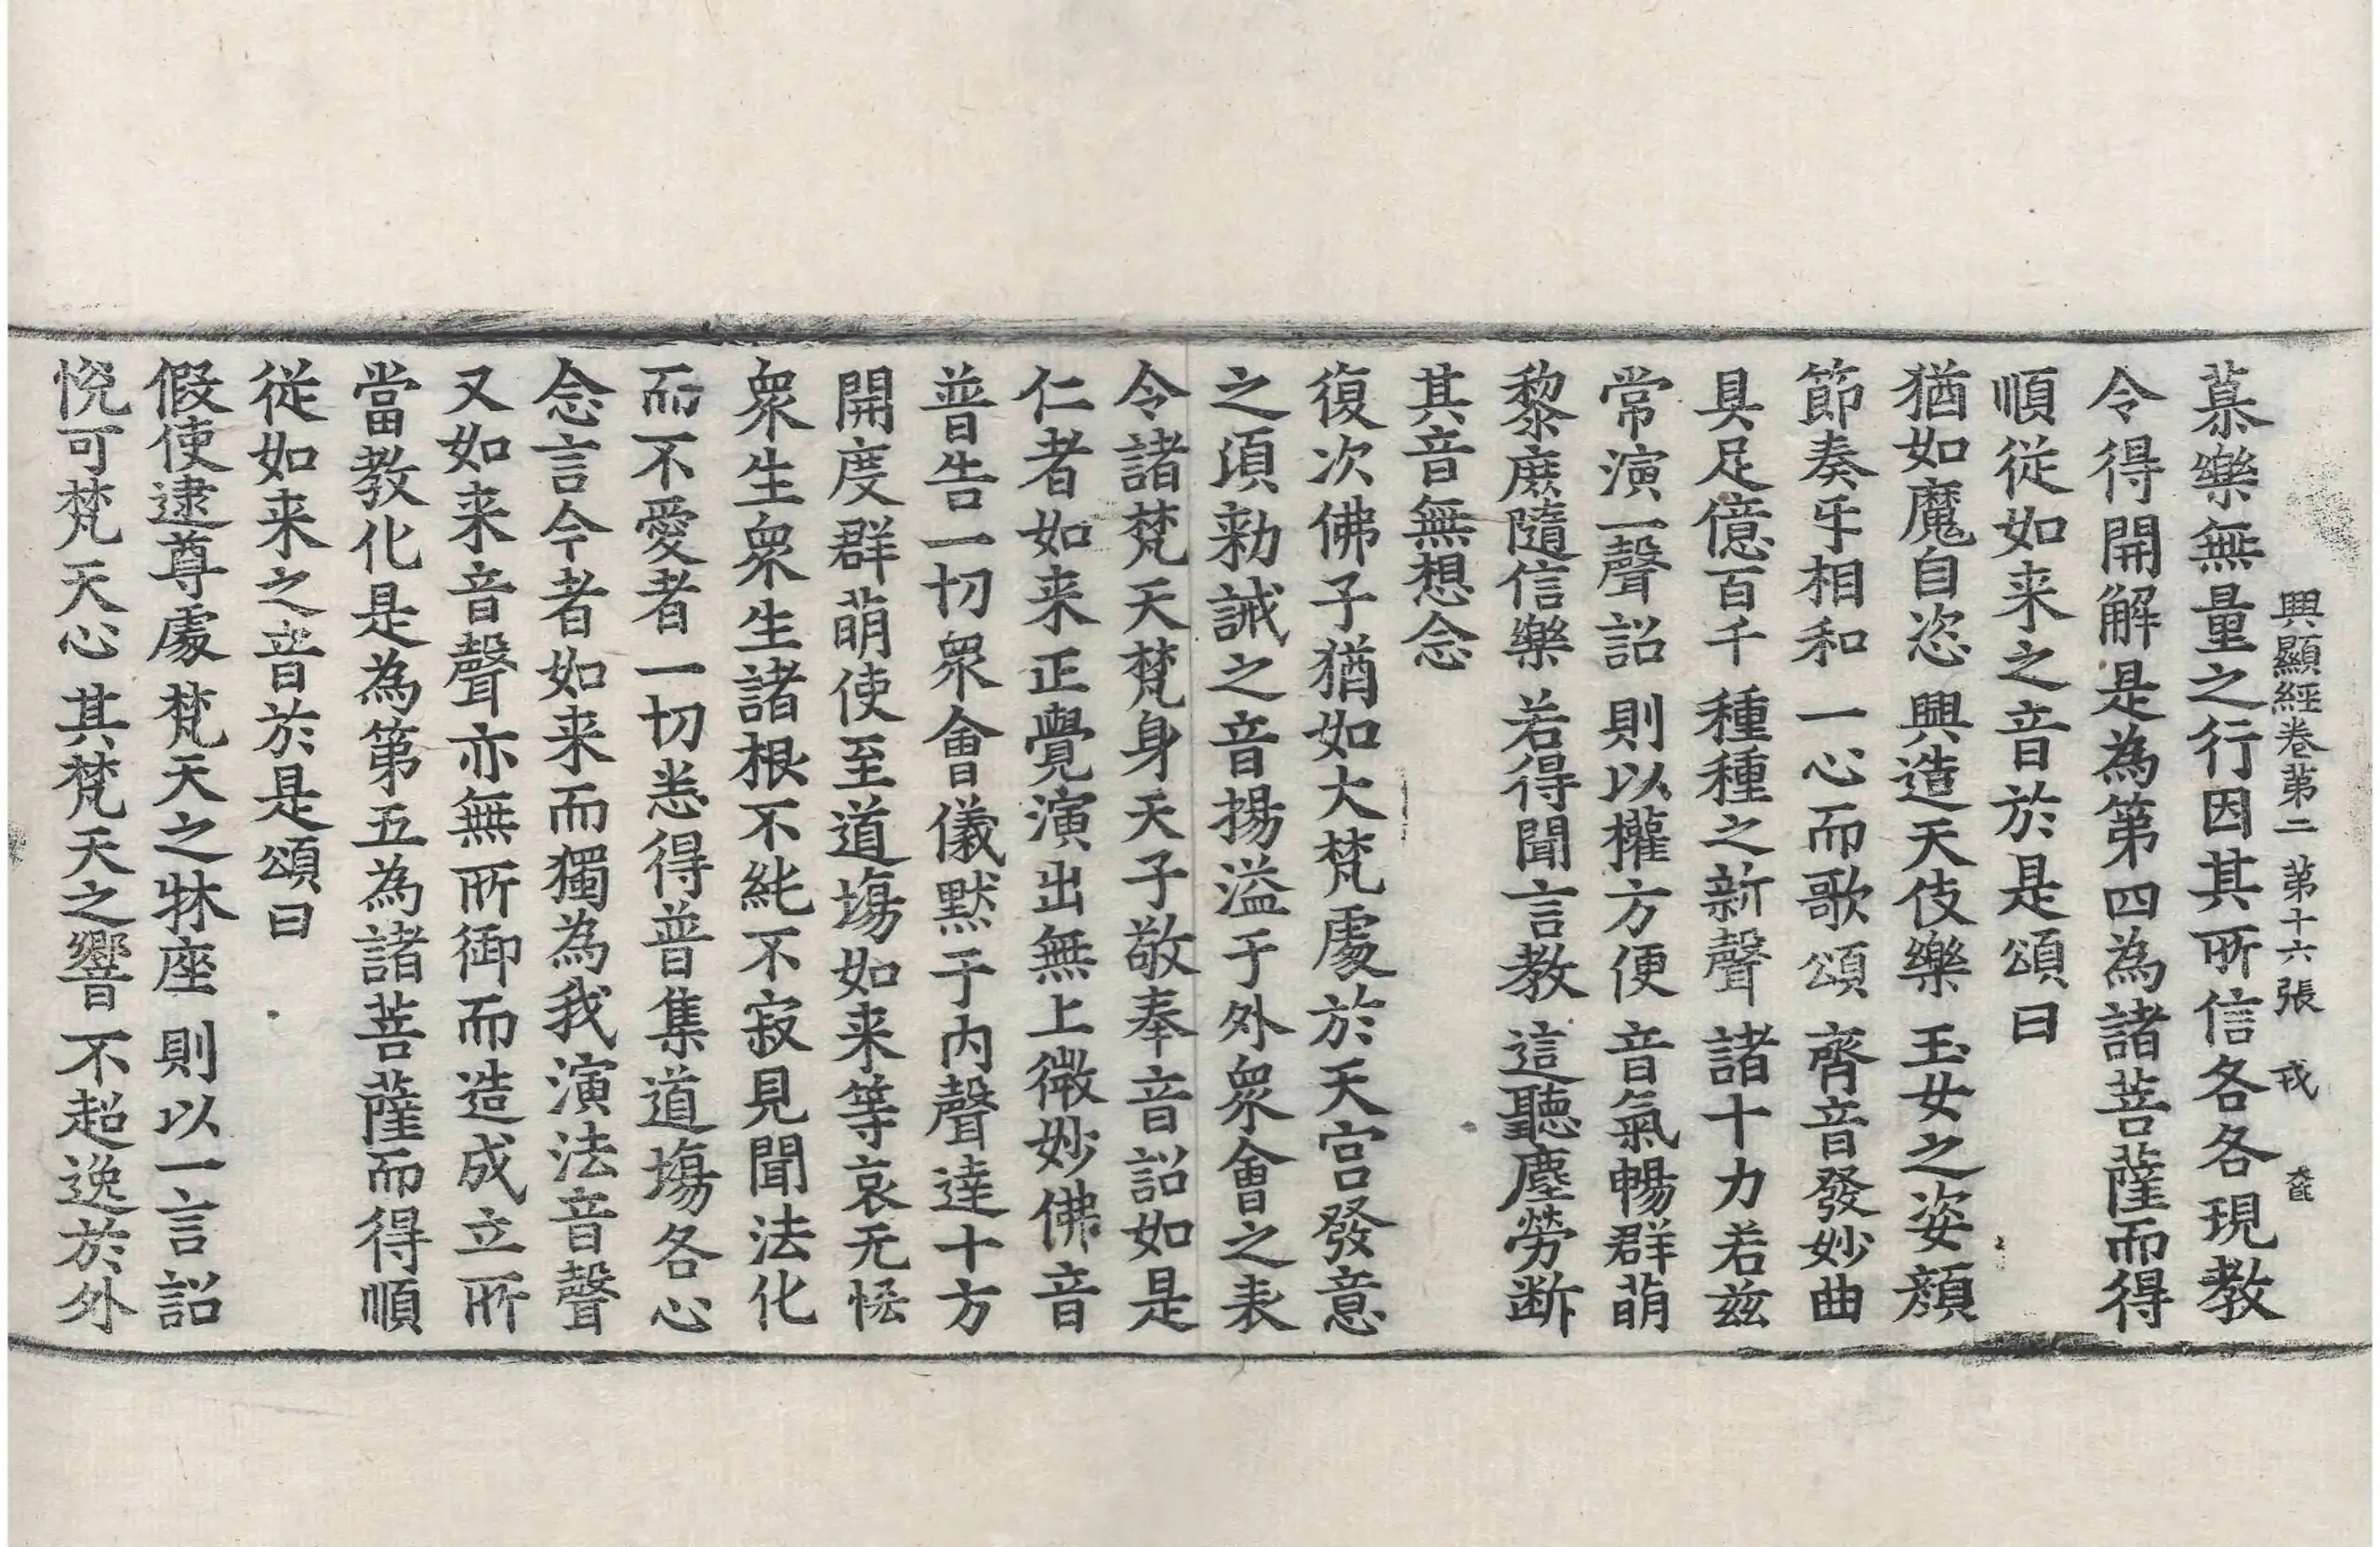 興顯經卷第二 第十六張 戎
慕樂無量之行因其所信各各現教
令得開解是為第四為諸菩薩而得
順從如来之音於是頌曰
猶如魔自恣 興造天伎樂 玉女之姿顏
節奏乐相和 一心而歌頌 齊音發妙曲
具足億百千 種種之新聲 諸十力若兹
常演一聲詔 則以權方便 音氣暢群萌
黎庶隨信樂 若得聞言教 這聽塵勞断
其音無想念
復次佛子猶如大梵處於天宮發意
之湏勑誡之音揚溢于外衆會之表
令諸梵天梵身天子敬奉音詔如是
仁者如来正覺演出無上微妙佛音
普告一切衆會儀默于內聲達十方
開度群萌使至道塲如来等哀无恠
衆生衆生諸根不純不寂見聞法化
而不愛者一切悉得普集道塲各心
念言今者如来而獨為我演法音聲
又如来音聲亦無所御而造成立所
當教化是為第五為諸菩薩而得順
從如来之音於是頌曰
假使逮尊處 梵天之牀座 則以一言詔
恱可梵天心 其梵天之響 不超逸於外